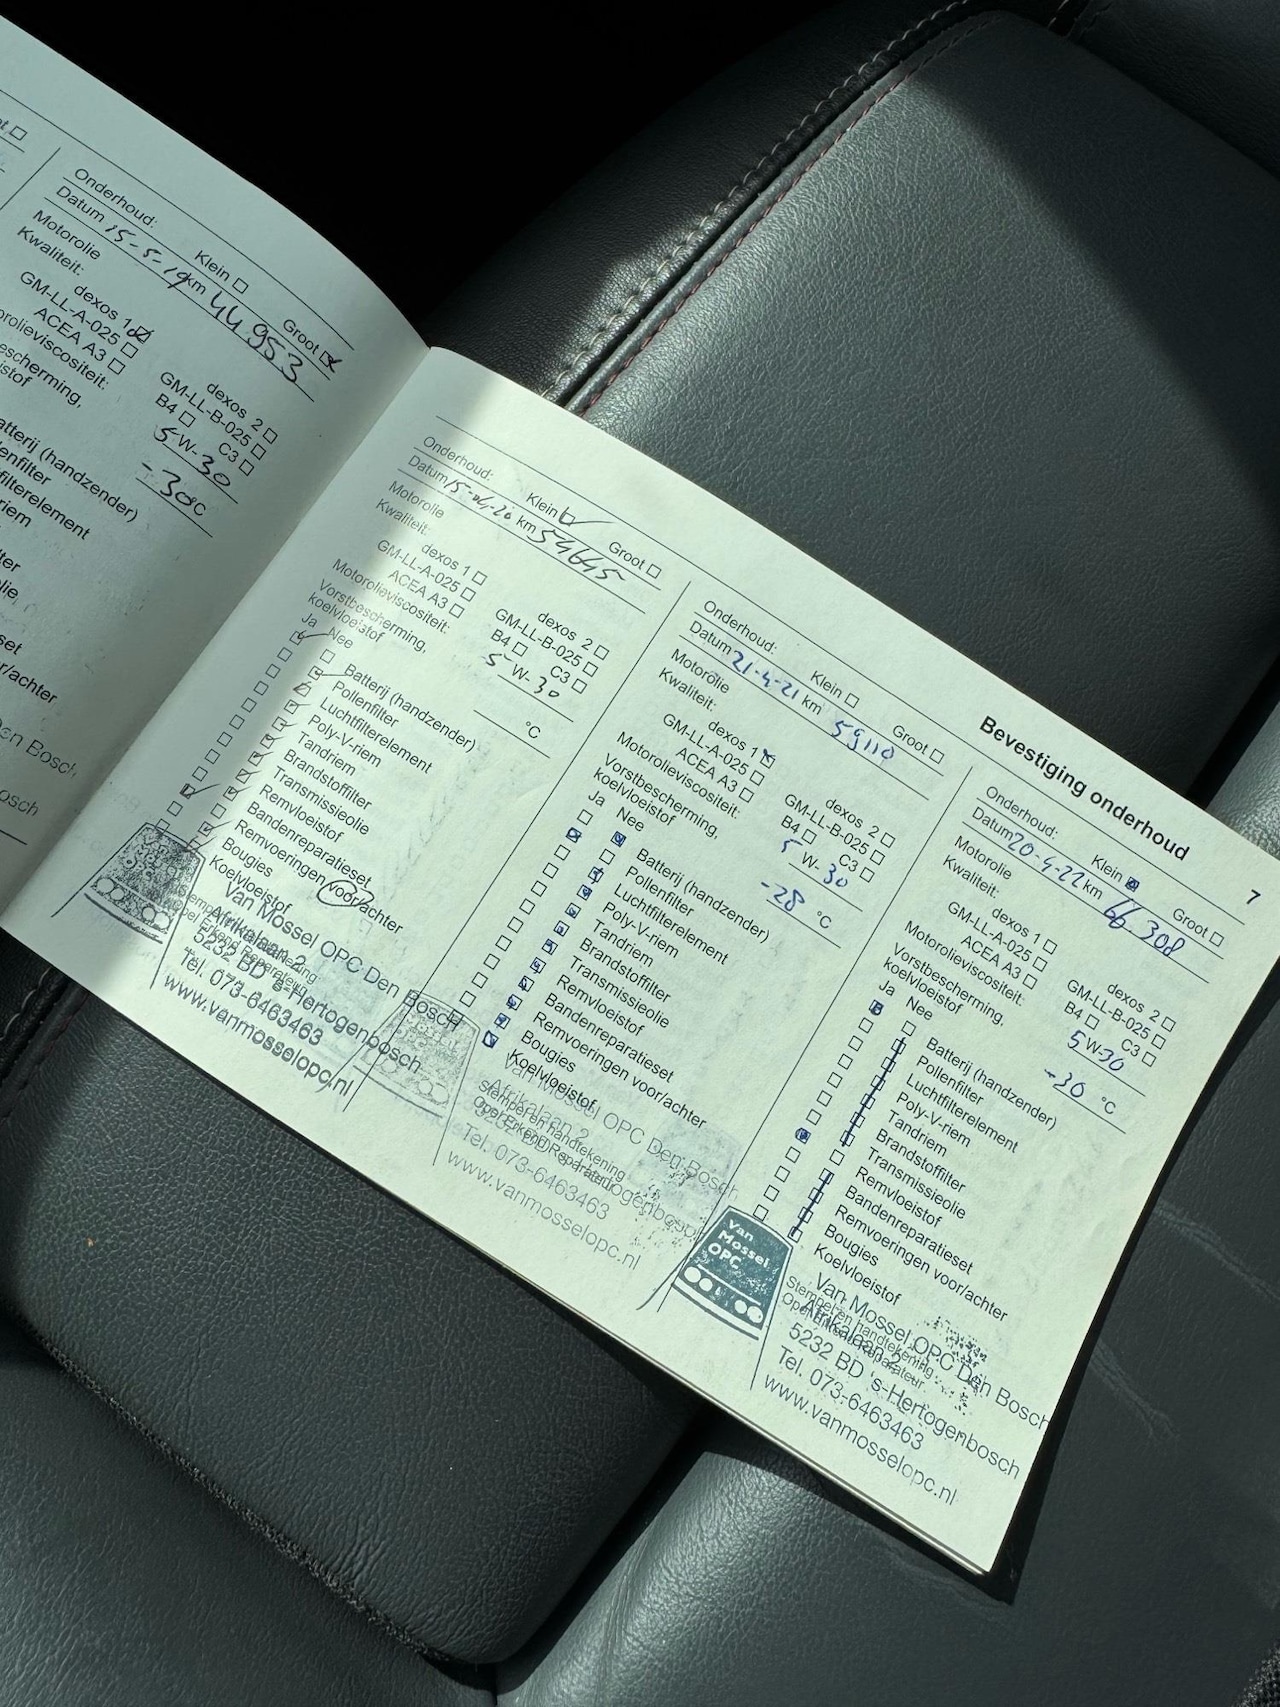 Onderhoud: Klein ☐ Groot ☒
Datum 15-5-19 km 44953
Motorolie
Kwaliteit:
dexos 1 ☒ dexos 2 ☐
GM-LL-A-025 ☐ GM-LL-B-025 ☐
ACEA A3 ☐ B4 ☐ C3 ☐
orolieviscositeit: 5 W- 30
escherming,
stof -30 °C
atterij (handzender)
enfilter
filterelement
riem
lter
lie
set
r/achter
Den Bosch
osch
Onderhoud: Klein ☑ Groot ☐
Datum 15-04-20 km 54645
Motorolie
Kwaliteit:
dexos 1 ☐ dexos 2 ☐
GM-LL-A-025 ☐ GM-LL-B-025 ☐
ACEA A3 ☐ B4 ☐ C3 ☐
Motorolieviscositeit: 5 W- 30
Vorstbescherming,
koelvloeistof °C
Ja Nee
Batterij (handzender)
Pollenfilter
Luchtfilterelement
Poly-V-riem
Tandriem
Brandstoffilter
Transmissieolie
Remvloeistof
Bandenreparatieset
Remvoeringen voor/achter
Bougies
Koelvloeistof
Van Mossel OPC Den Bosch
Afrikalaan 2
5232 BD 's-Hertogenbosch
Tel. 073-6463463
www.vanmosselopc.nl
Onderhoud: Klein ☐ Groot ☐
Datum 21-4-21 km 59110
Motorolie
Kwaliteit:
dexos 1 ☒ dexos 2 ☐
GM-LL-A-025 ☐ GM-LL-B-025 ☐
ACEA A3 ☐ B4 ☐ C3 ☐
Motorolieviscositeit: 5 W- 30
Vorstbescherming,
koelvloeistof -28 °C
Ja Nee
Batterij (handzender)
Pollenfilter
Luchtfilterelement
Poly-V-riem
Tandriem
Brandstoffilter
Transmissieolie
Remvloeistof
Bandenreparatieset
Remvoeringen voor/achter
Bougies
Koelvloeistof
Van Mossel OPC Den Bosch
Stempel en handtekening
Afrikalaan 2
Opel Erkend Reparateur
5232 BD 's-Hertogenbosch
Tel. 073-6463463
www.vanmosselopc.nl
Bevestiging onderhoud
7
Onderhoud: Klein ☒ Groot ☐
Datum 20-4-22 km 66 308
Motorolie
Kwaliteit:
dexos 1 ☐ dexos 2 ☐
GM-LL-A-025 ☐ GM-LL-B-025 ☐
ACEA A3 ☐ B4 ☐ C3 ☐
Motorolieviscositeit: 5 W- 30
Vorstbescherming,
koelvloeistof -30 °C
Ja Nee
Batterij (handzender)
Pollenfilter
Luchtfilterelement
Poly-V-riem
Tandriem
Brandstoffilter
Transmissieolie
Remvloeistof
Bandenreparatieset
Remvoeringen voor/achter
Bougies
Koelvloeistof
Van
Mossel
OPC
Van Mossel OPC Den Bosch
Stempel en handtekening
Afrikalaan 2
Opel Erkend Reparateur
5232 BD 's-Hertogenbosch
Tel. 073-6463463
www.vanmosselopc.nl